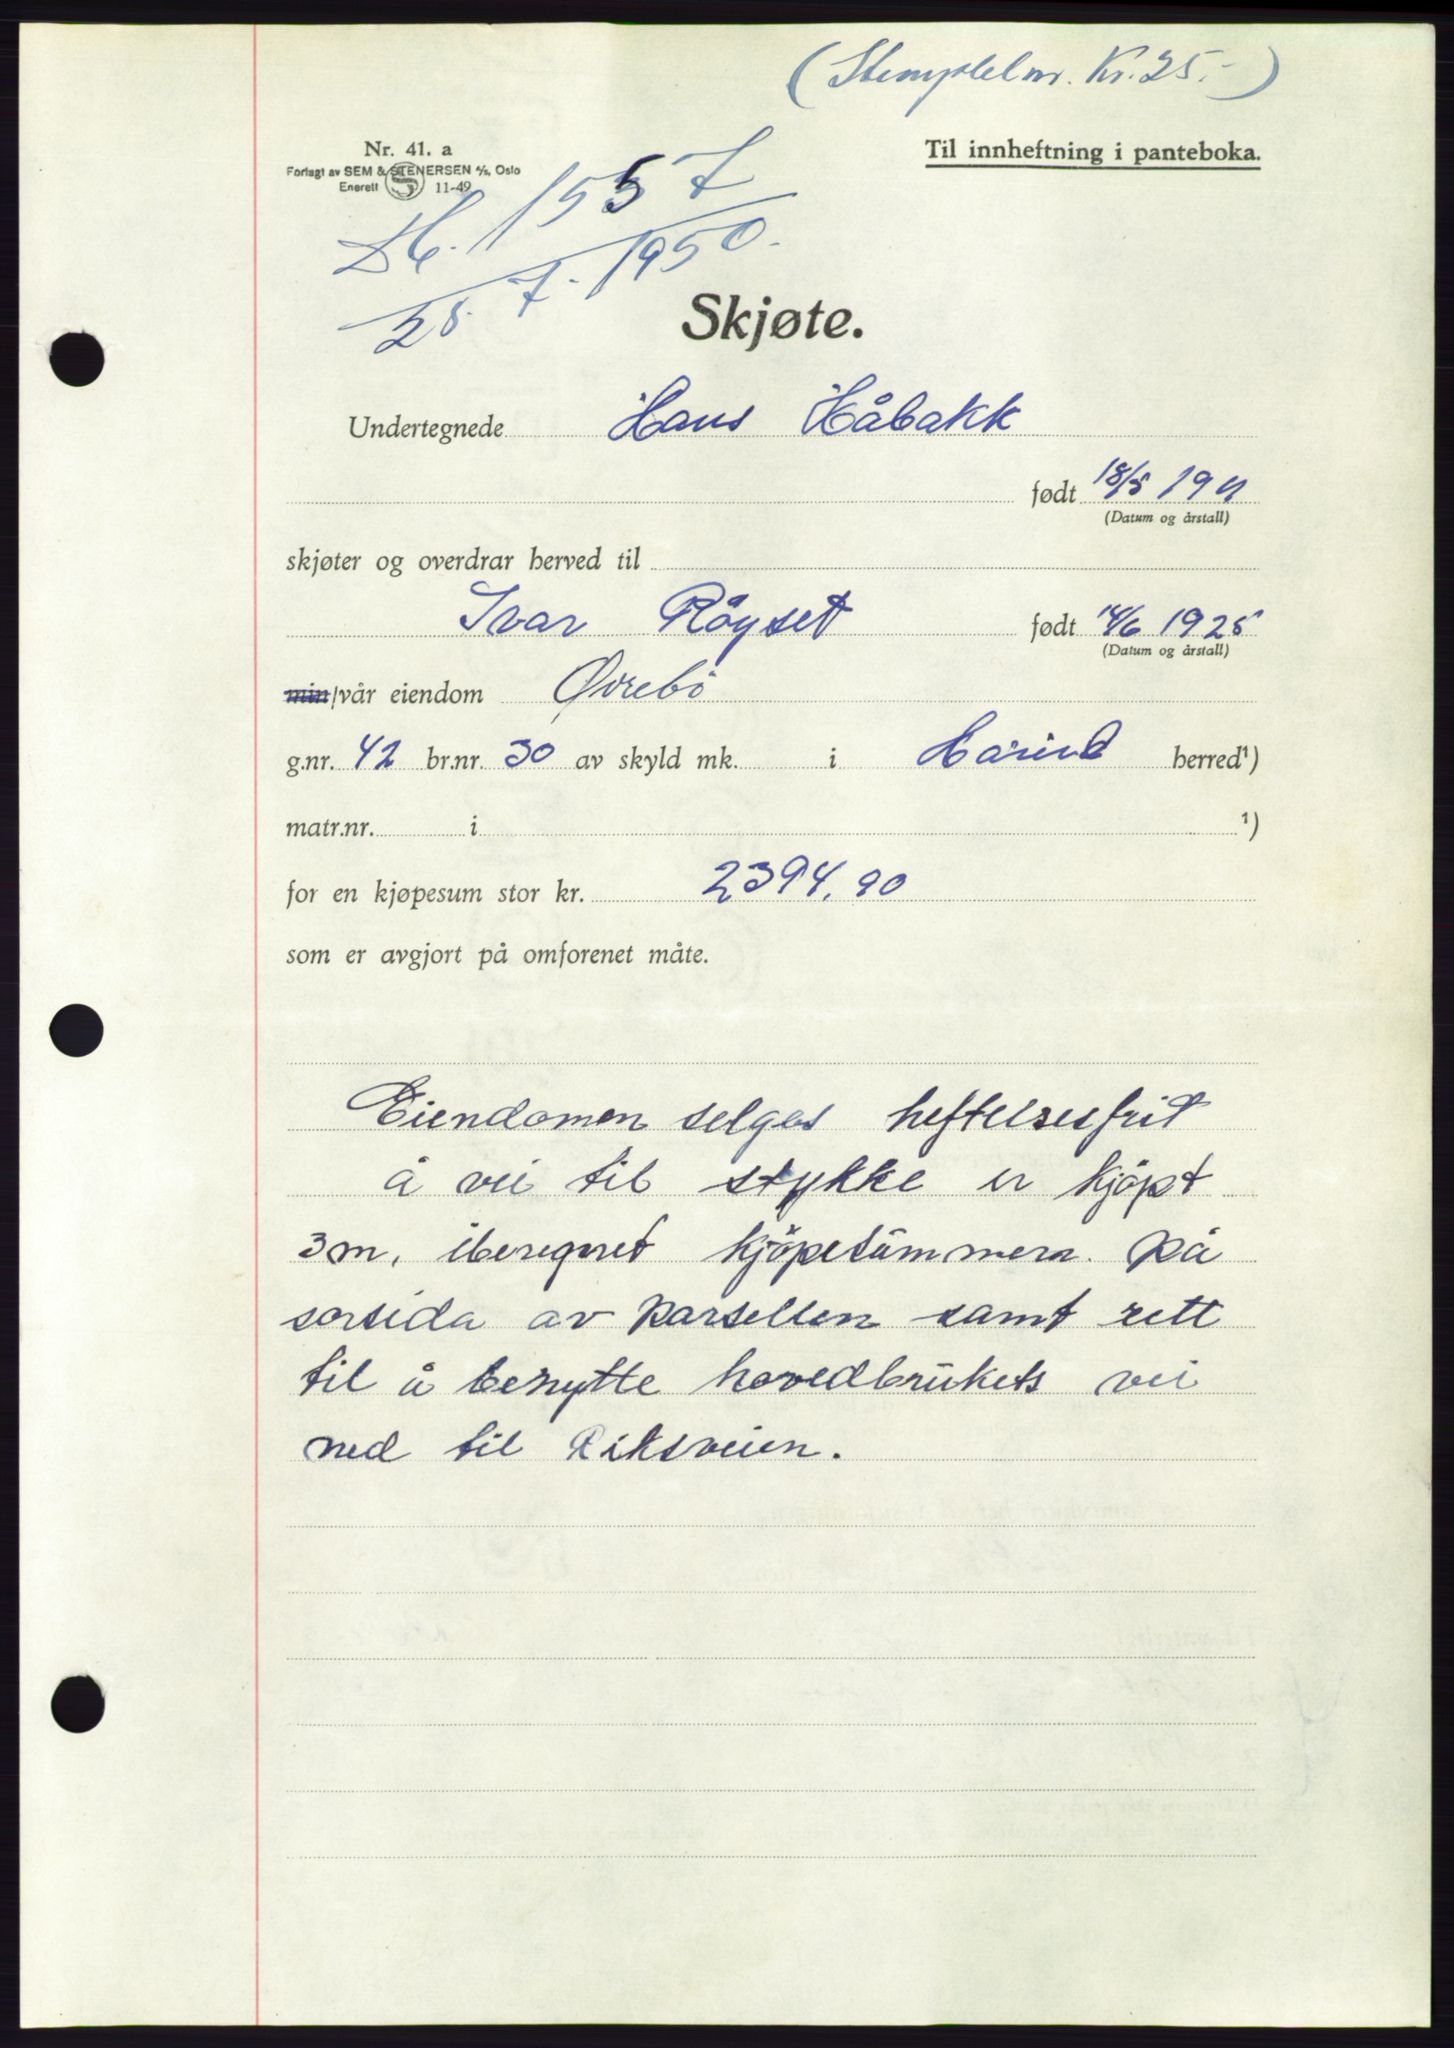 (Stempelm. Kr. 25.-)
Nr. 41. a
Forlagt av SEM & STENERSEN A/S, Oslo
Enerett 11-49
Til innheftning i panteboka.
Db. 1557
28. 7. 1950.
Skjøte.
Undertegnede Hans Håbakk
født 18/5 1911
(Datum og årstall)
skjøter og overdrar herved til
Ivar Röyset født 14/6 1925
(Datum og årstall)
min/vår eiendom Øvrebö
g.nr. 42 br.nr. 30 av skyld mk. i Hareid herred¹)
matr.nr. i ¹)
for en kjøpesum stor kr. 2394,90
som er avgjort på omforenet måte.
Eiendomen selges heftelsesfrit
å vei til stykke er kjöpt
3m, iberegnet kjöpesummen. på
sorsida av parsellen samt rett
til å benytte hovedbrukets vei
ned til Riksveien.